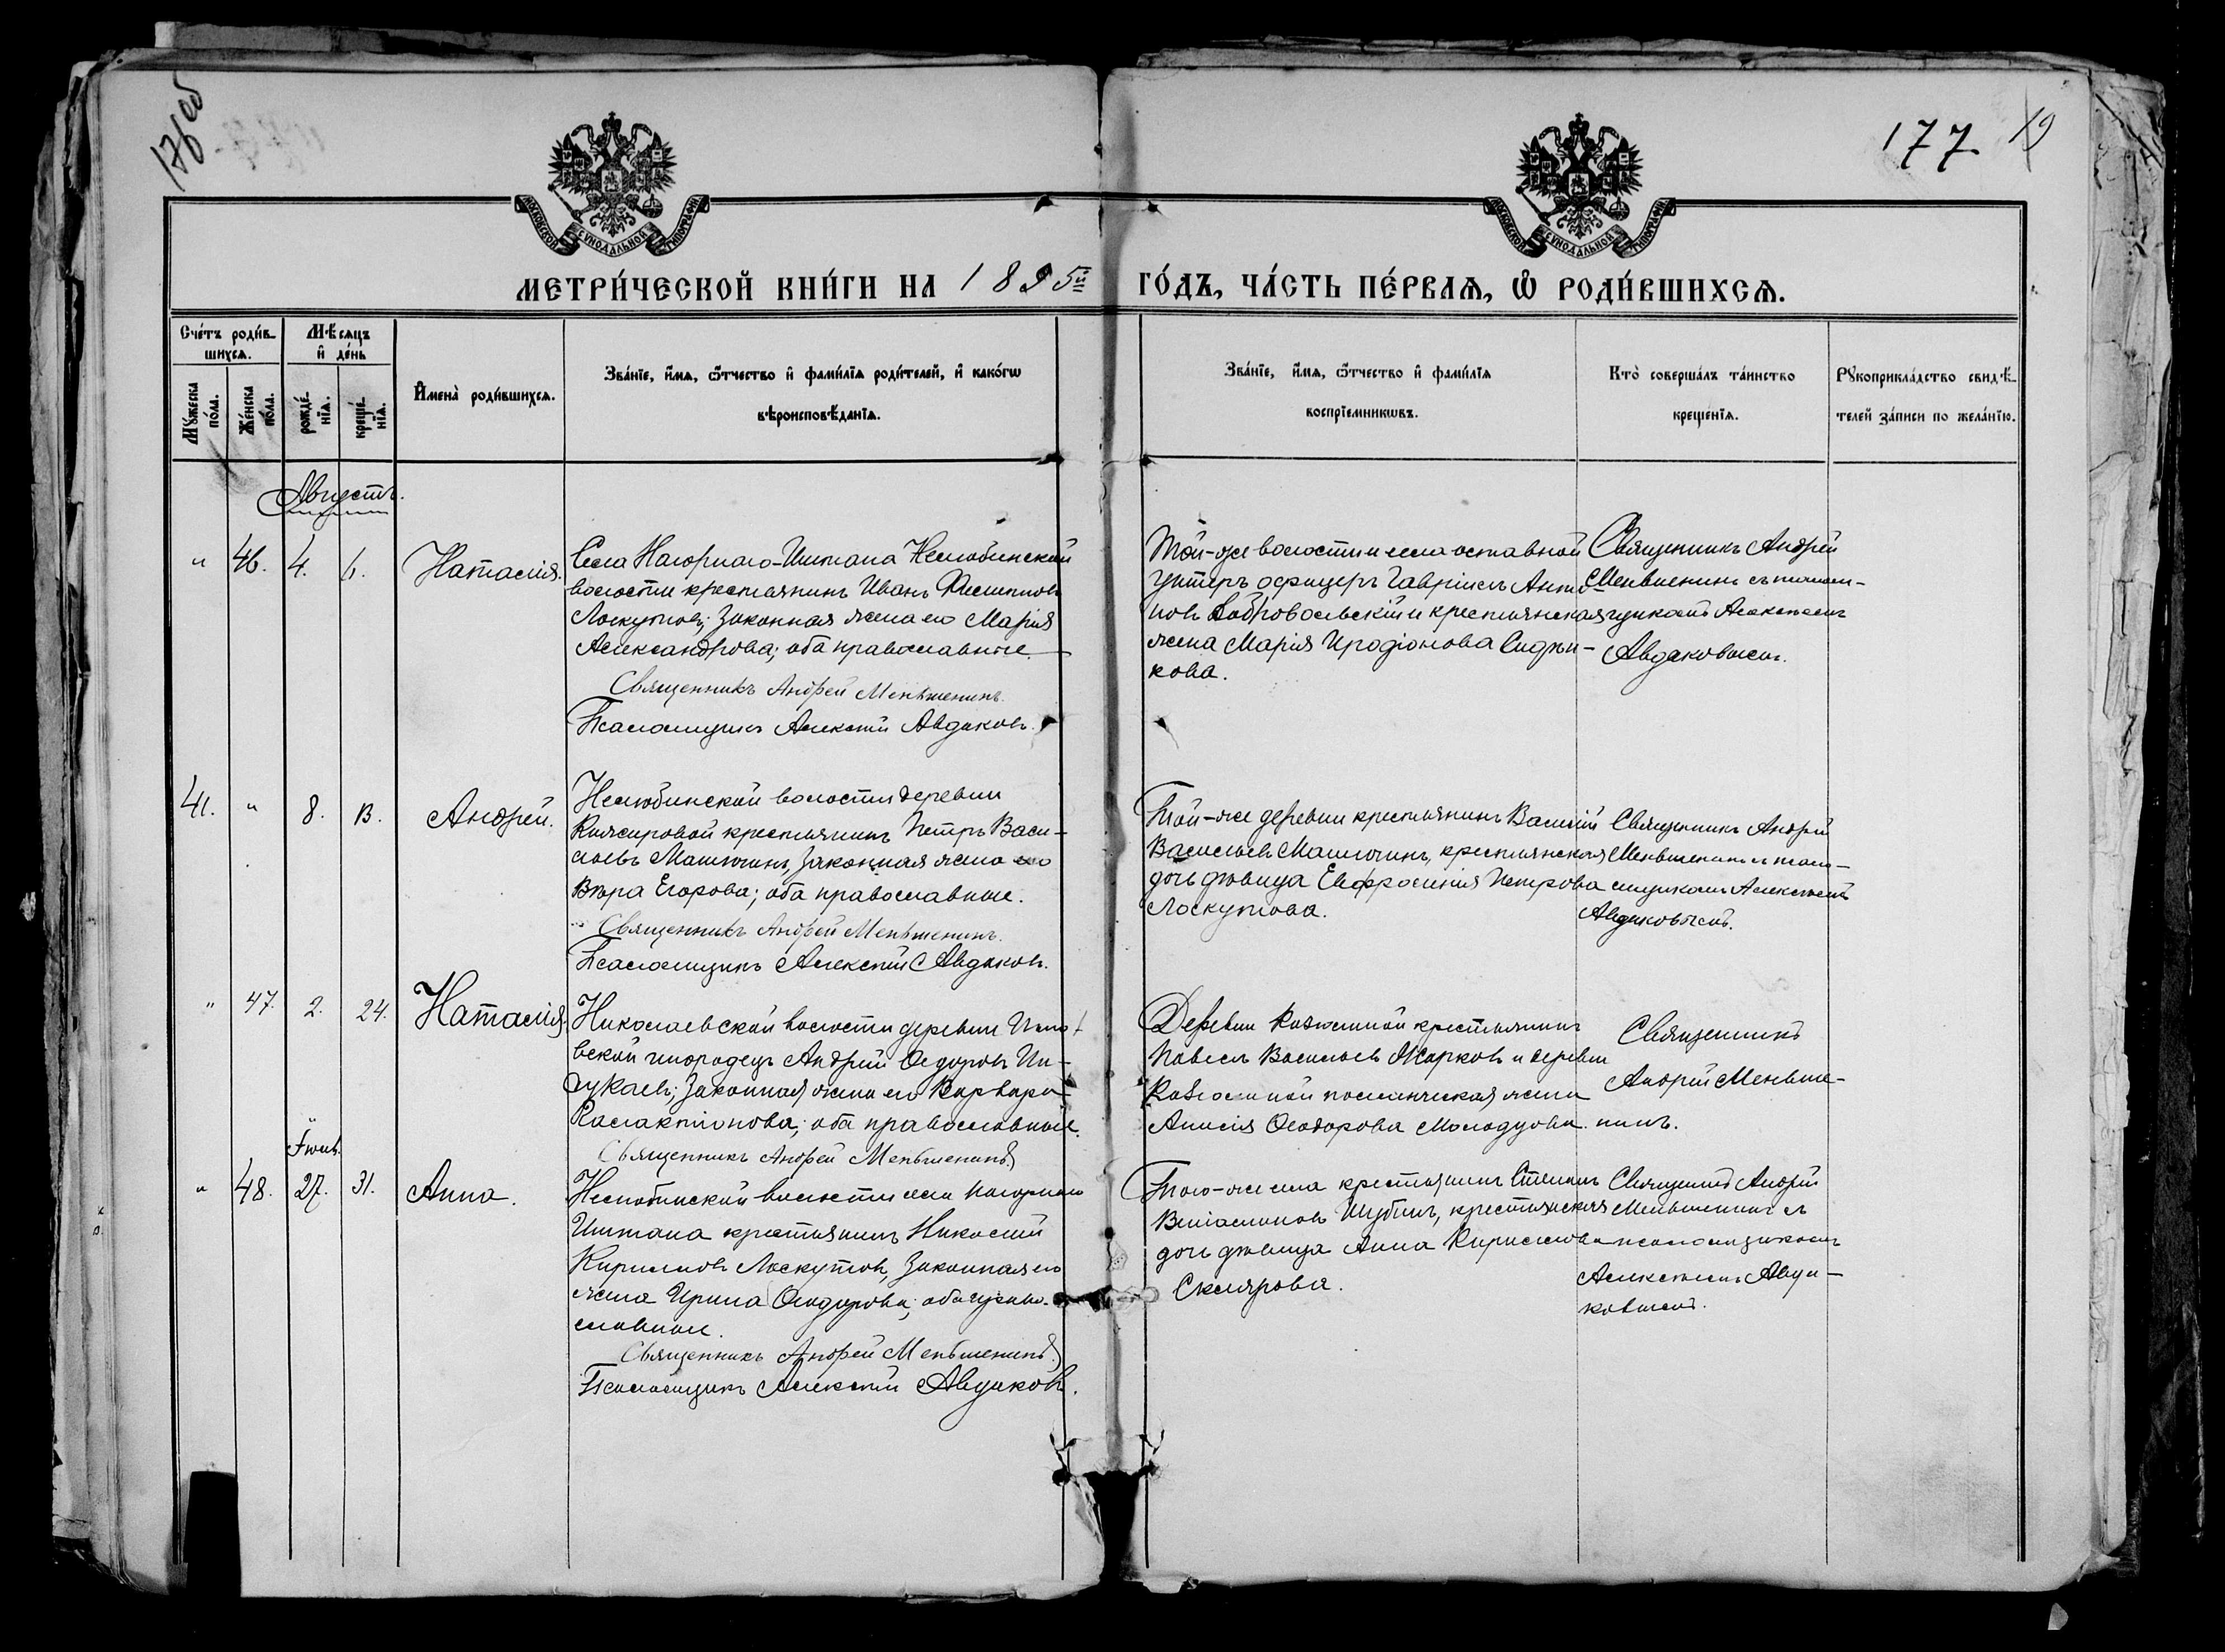 176 об
177
19
МОСКОВСКОЙ СУНОДАЛЬНОЙ ТИПОГРАФІИ
МОСКОВСКОЙ СУНОДАЛЬНОЙ ТИПОГРАФІИ
МЕТРИ́ЧЕСКОЙ КНИ́ГИ НА 1895й ГО́ДЪ, ЧА́СТЬ ПЕ́РВАѦ, Ѡ РОДИ́ВШИХСѦ.
Сче́тъ роди́в-
шихсѧ.
Мꙋ́жеска по́ла.
Же́нска по́ла.
Мѣ́сѧцъ
и҆ де́нь
рожде́-
нїѧ.
креще́-
нїѧ.
И҆мена̀ роди́вшихсѧ.
Зва́нїе, и҆́мѧ, ѻ҆́тчество и҆ фами́лїѧ роди́телей, и҆ како́гѡ
вѣроисповѣ́данїѧ.
Зва́нїе, и҆́мѧ, ѻ҆́тчество и҆ фами́лїѧ
воспрїе́мникѡвъ.
Кто̀ соверша́лъ та́инство
креще́нїѧ.
Рꙋкоприкла́дство свидѣ́-
телей за́писи по жела́нїю.
Августъ.
" 46. 4. 6. Наталия.
Села Нагорнаго-Иштана Нелюбинской
волости крестьянинъ Иванъ Филипповъ
Лоскутовъ; законная жена его Марія
Александрова; оба православные.
Священникъ Андрей Меньшенинъ.
Псаломщикъ Алексѣй Авдаковъ.
Той-же волости и села отставной
унтеръ офицеръ Гавріилъ Анти-
повъ Добровольскій и крестьянская
жена Марія Иродіонова
кова.
Священникъ Андрей
Меньшенинъ съ псалом-
щикомъ Алексѣемъ
Авдаковымъ.
41. " 8. 13. Андрей.
Нелюбинской волости деревни
крестьянинъ Петръ Васи-
льевъ законная жена его
Вѣра Егорова; оба православные.
Священникъ Андрей Меньшенинъ.
Псаломщикъ Алексѣй Авдаковъ.
Той-же деревни крестьянинъ Василій
Васильевъ крестьянская
дочь дѣвица Евфросинія Петрова
Лоскутова.
Священникъ Андрей
Меньшенинъ съ псало-
мщикомъ Алексѣемъ
Авдаковымъ.
" 47. 2. 24. Наталия.
Николаевской волости деревни
вской инородецъ Андрей Ѳедоровъ
законная жена его Варвара
оба православные.
Священникъ Андрей Меньшенинъ
Деревни крестьянинъ
Павелъ Васильевъ Жарковъ и деревни
жена
Анисія Ѳеодорова
Священникъ
Андрей Меньше-
нинъ.
Іюль.
" 48. 27. 31. Анна.
Нелюбинской волости села Нагорнаго
Иштана крестьянинъ Николай
Кирилловъ Лоскутовъ, законная его
жена Ирина Ѳеодорова; оба право-
славные.
Священникъ Андрей Меньшенинъ
Псаломщикъ Алексѣй Авдаковъ.
Того-же села крестьянинъ Степанъ
Шубинъ, крестьянская
дочь дѣвица Анна Кириллова
Склярова.
Священникъ Андрей
Меньшенинъ съ
псаломщикомъ
Алексѣемъ Авда-
ковымъ.